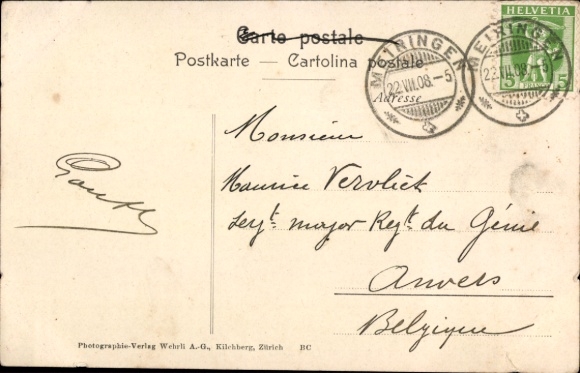 Carte postale
Postkarte — Cartolina postale
Adresse
HELVETIA
5 5
FRANCO
MEIRINGEN
22.VII.08.–5
MEIRINGEN
22.VII.08.–5
Monsieur
Maurice Vervliet
Sergt. major Regt. du Génie
Anvers
Belgique
Photographie-Verlag Wehrli A.-G., Kilchberg, Zürich BC